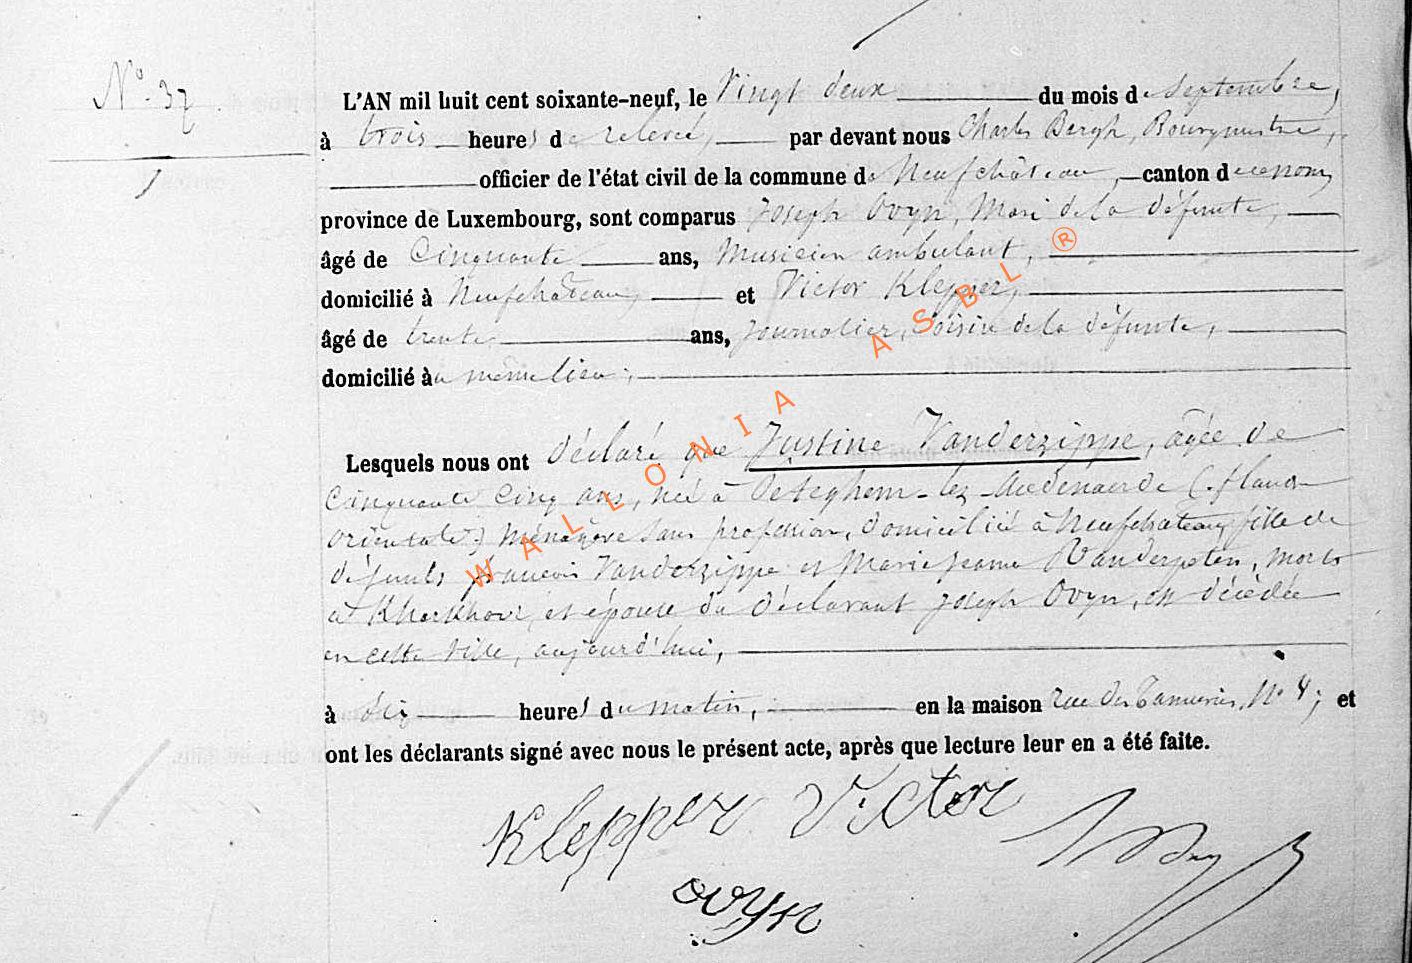 N° 37
L'AN mil huit cent soixante-neuf, le Vingt deux du mois de Septembre,
à trois heures de relevée, par devant nous Charles Bergh, Bourgmestre,
officier de l'état civil de la commune de Neufchâteau, canton de ce nom,
province de Luxembourg, sont comparus Joseph Ovyn, Mari de la défunte,
âgé de Cinquante ans, Musicien ambulant,
domicilié à Neufchâteau, et Victor Klepper,
âgé de trente ans, Journalier, Voisin de la défunte,
domicilié au même lieu;
Lesquels nous ont déclaré que Justine Vanderzippe, agée de
Cinquante Cinq ans, née à Peteghem-lez-Audenaerde (fland-
orientale) Ménagère sans profession, domiciliée à Neufchateau, fille de
défunts françois Vanderzippe et Marie Jeanne Vanderpoten, morts
à Kherkhove, et épouse du déclarant Joseph Ovyn, est décédée
en cette Ville, aujourd'hui,
à dix heures du matin, en la maison rue des Tanneries, N° 8; et
ont les déclarants signé avec nous le présent acte, après que lecture leur en a été faite.
Klepper Victor
Ovyn
WALLONIA ASBL ®